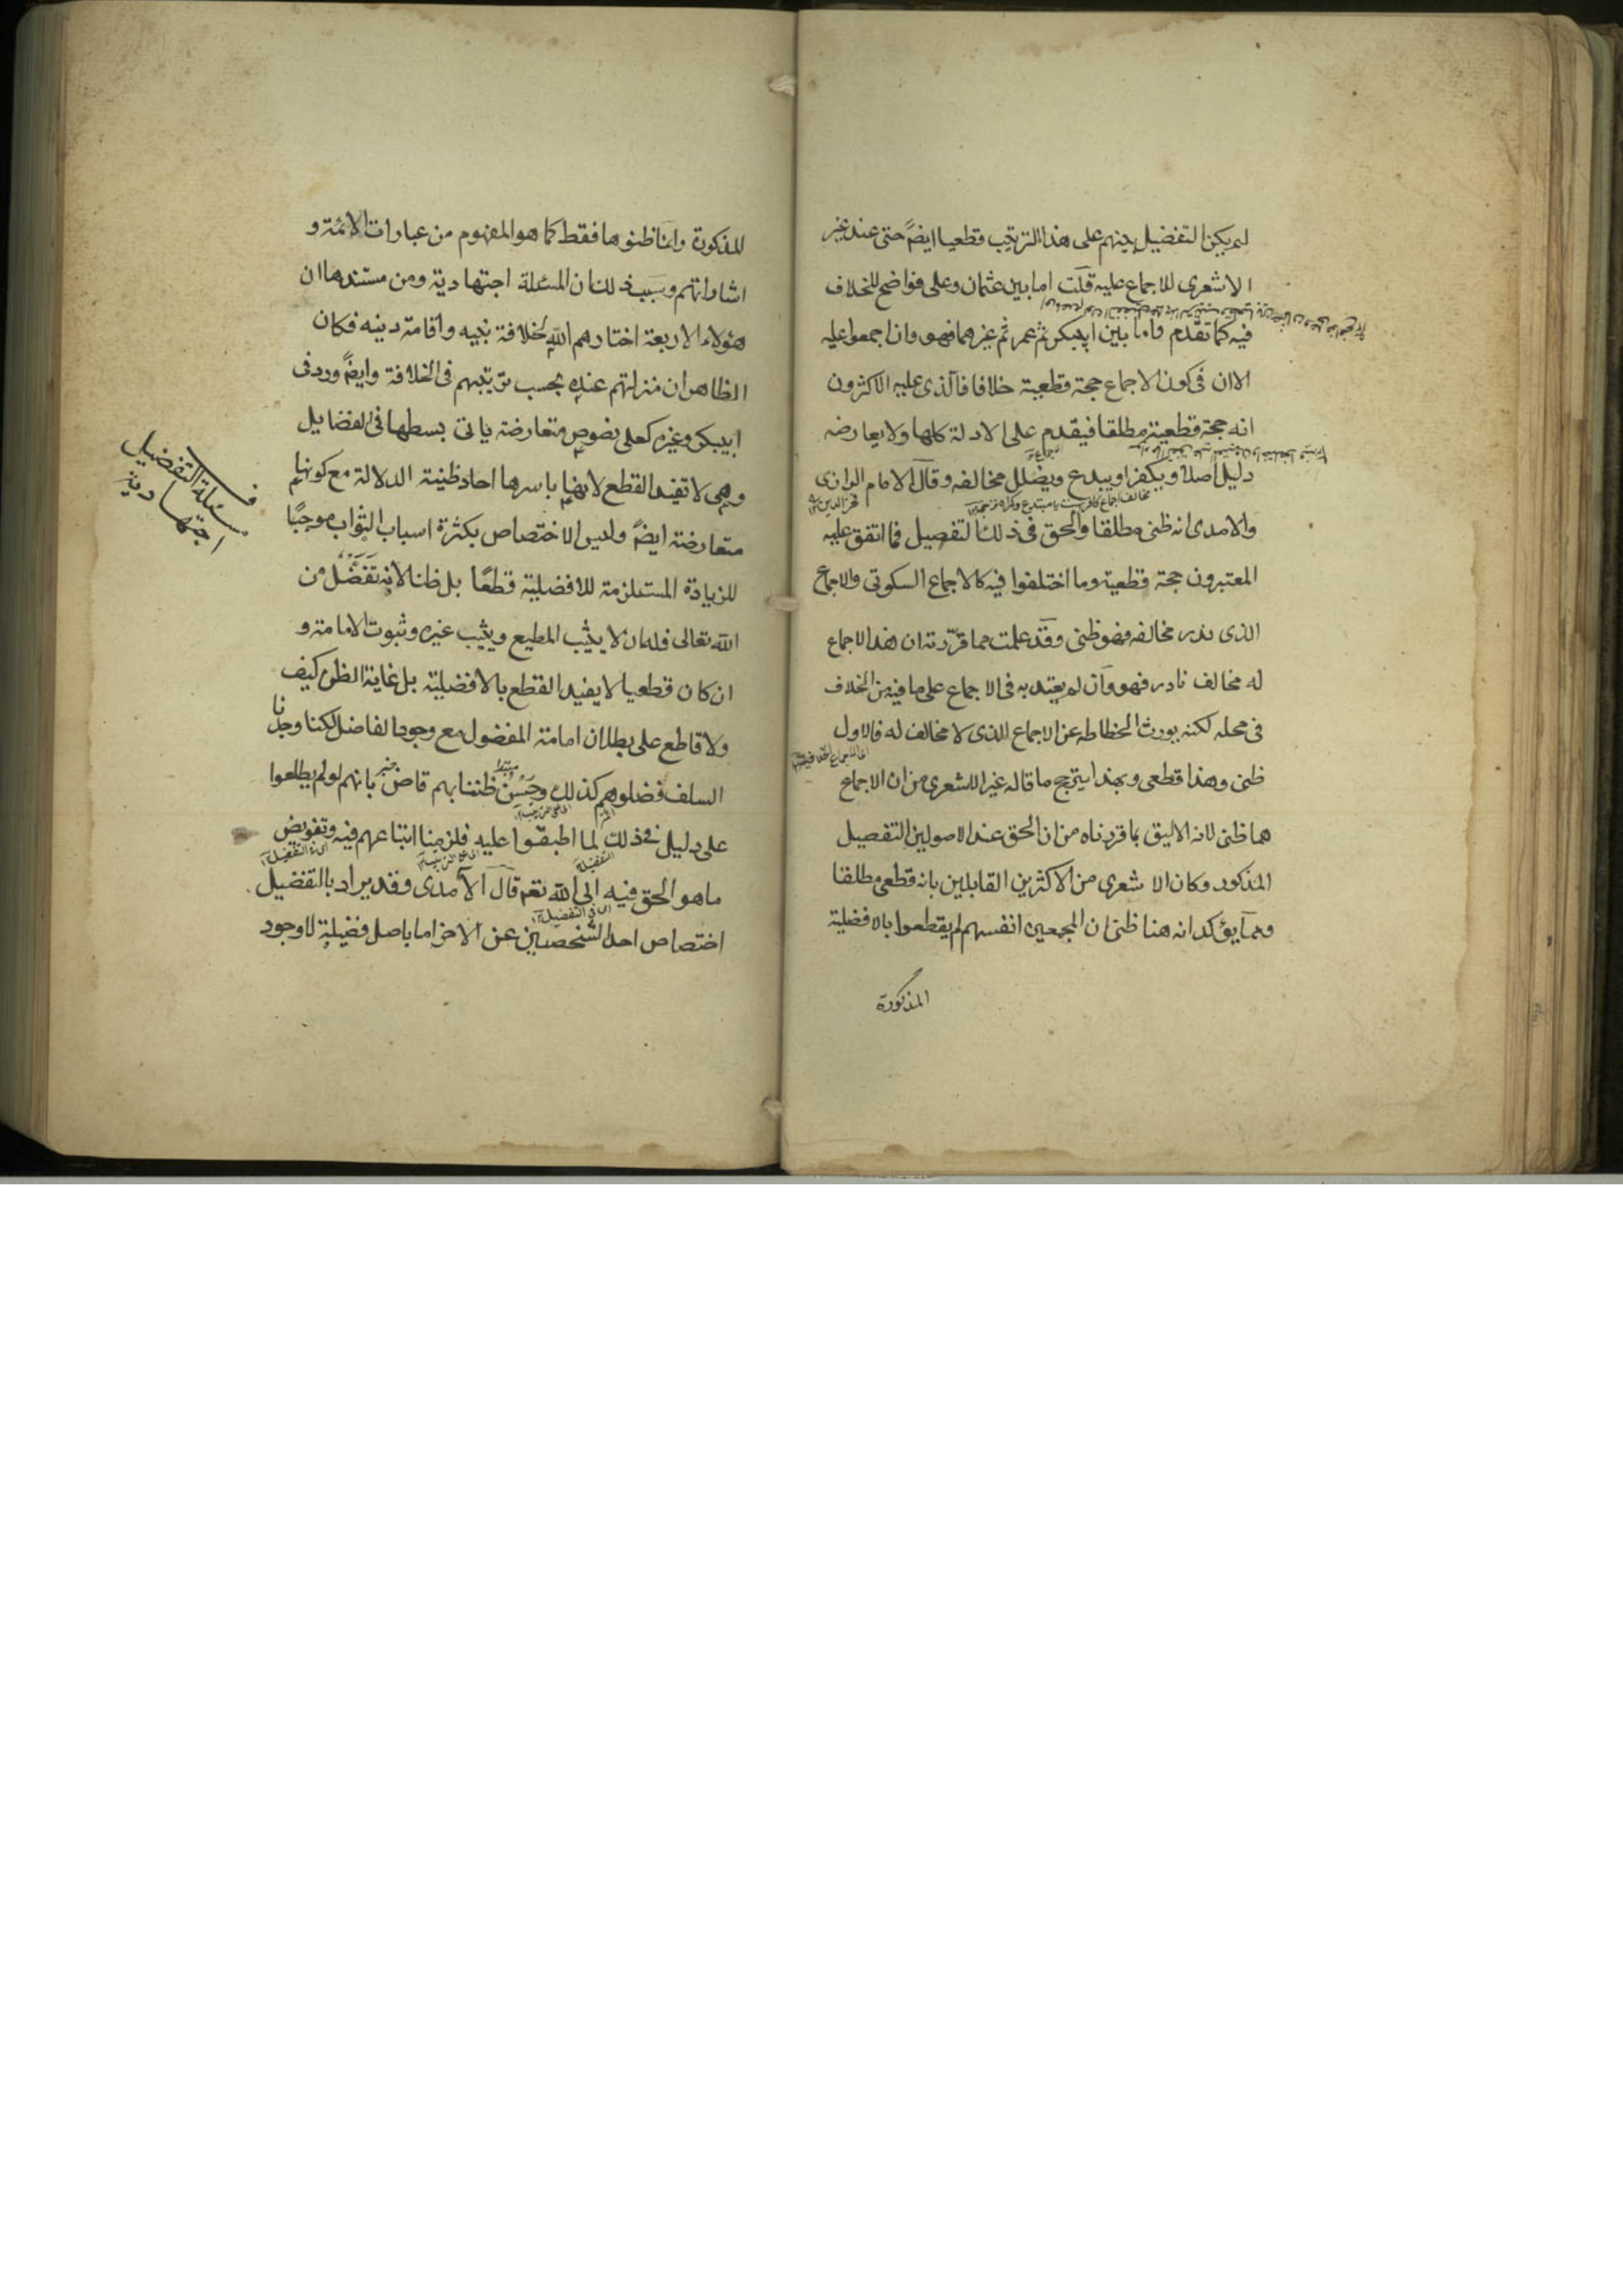 لم يكن التفضيل بينهم على هذا الترتيب قطعيا ايضاً حتى عند غير
الاشعرى للاجماع عليه قلت اما بين عثمان وعلى فواضح للخلاف
فيه كما تقدم واما بين ابيبكر ثم عمر ثم غيرهما فهو وان اجمعوا عليه
الا ان فى كون الاجماع حجة قطعية خلافا فالذى عليه الاكثرون
انه حجة قطعية مطلقا فيقدم على الادلة كلها ولا يعارضه
دليل اصلا ويكفر او يبدع ويضلل مخالفه وقال الامام الرازى
فخر الدين
والامدى انه ظنى مطلقا والحق فى ذلك التفصيل فما اتفق عليه
المعتبرون حجة قطعية وما اختلفوا فيه كالاجماع السكوتى والاجماع
الذى ندر مخالفه فهو ظنى وقد علمت مما قررته ان هذا الاجماع
له مخالف نادر فهو وان لم يعتد به فى الاجماع على ما فيه من الخلاف
فى محله لكنه يورث انحطاطه عن الاجماع الذى لا مخالف له فالاول
ظنى وهذا قطعى وبهذا يترجح ما قاله غير الاشعرى من ان الاجماع
هنا ظنى لانه الاليق بما قررناه من ان الحق عند الاصولين التفصيل
المذكور وكان الاشعرى من الاكثرين القايلين بانه قطعى مطلقا
ومما يؤكد انه هنا ظنى ان المجمعين انفسهم لم يقطعوا بالافضلية
المذكورة
المذكورة وانما ظنوها فقط كما هو المفهوم من عبارات الائمة و
اشاراتهم وسبب ذلك ان المسئلة اجتهادية ومن مستندها ان
هؤلاء الاربعة اختارهم الله لخلافة نبيه واقامة دينه فكان
الظاهر ان منزلتهم عنده بحسب ترتيبهم فى الخلافة وايضاً ورد فى
ابيبكر وغيره كعلى نصوص متعارضة ياتى بسطها فى الفضايل
وهى لا تفيد القطع لانها باسرها احاد ظنية الدلالة مع كونها
متعارضة ايضاً وليس الاختصاص بكثرة اسباب الثواب موجبًا
للزيادة المستلزمة للافضلية قطعًا بل ظنا لانه تفضل من
الله تعالى فله ان لا يثيب المطيع ويثيب غيره وثبوت الامامة و
ان كان قطعيا لا يفيد القطع بالافضلية بل غاية الظن كيف
ولا قاطع على بطلان امامة المفضول مع وجود الفاضل لكنا وجدنا
السلف فضلوهم كذلك وحسن ظننا بهم قاض بانهم لو لم يطلعوا
على دليل فى ذلك لما اطبقوا عليه فلزمنا اتباعهم فيه وتفويض
ما هو الحق فيه الى الله تعم قال الآمدى وقد يراد بالتفضيل
اختصاص احد الشخصين عن الاخر اما باصل فضيلة لا وجود
مسئلة التفضيل
اجتهادية